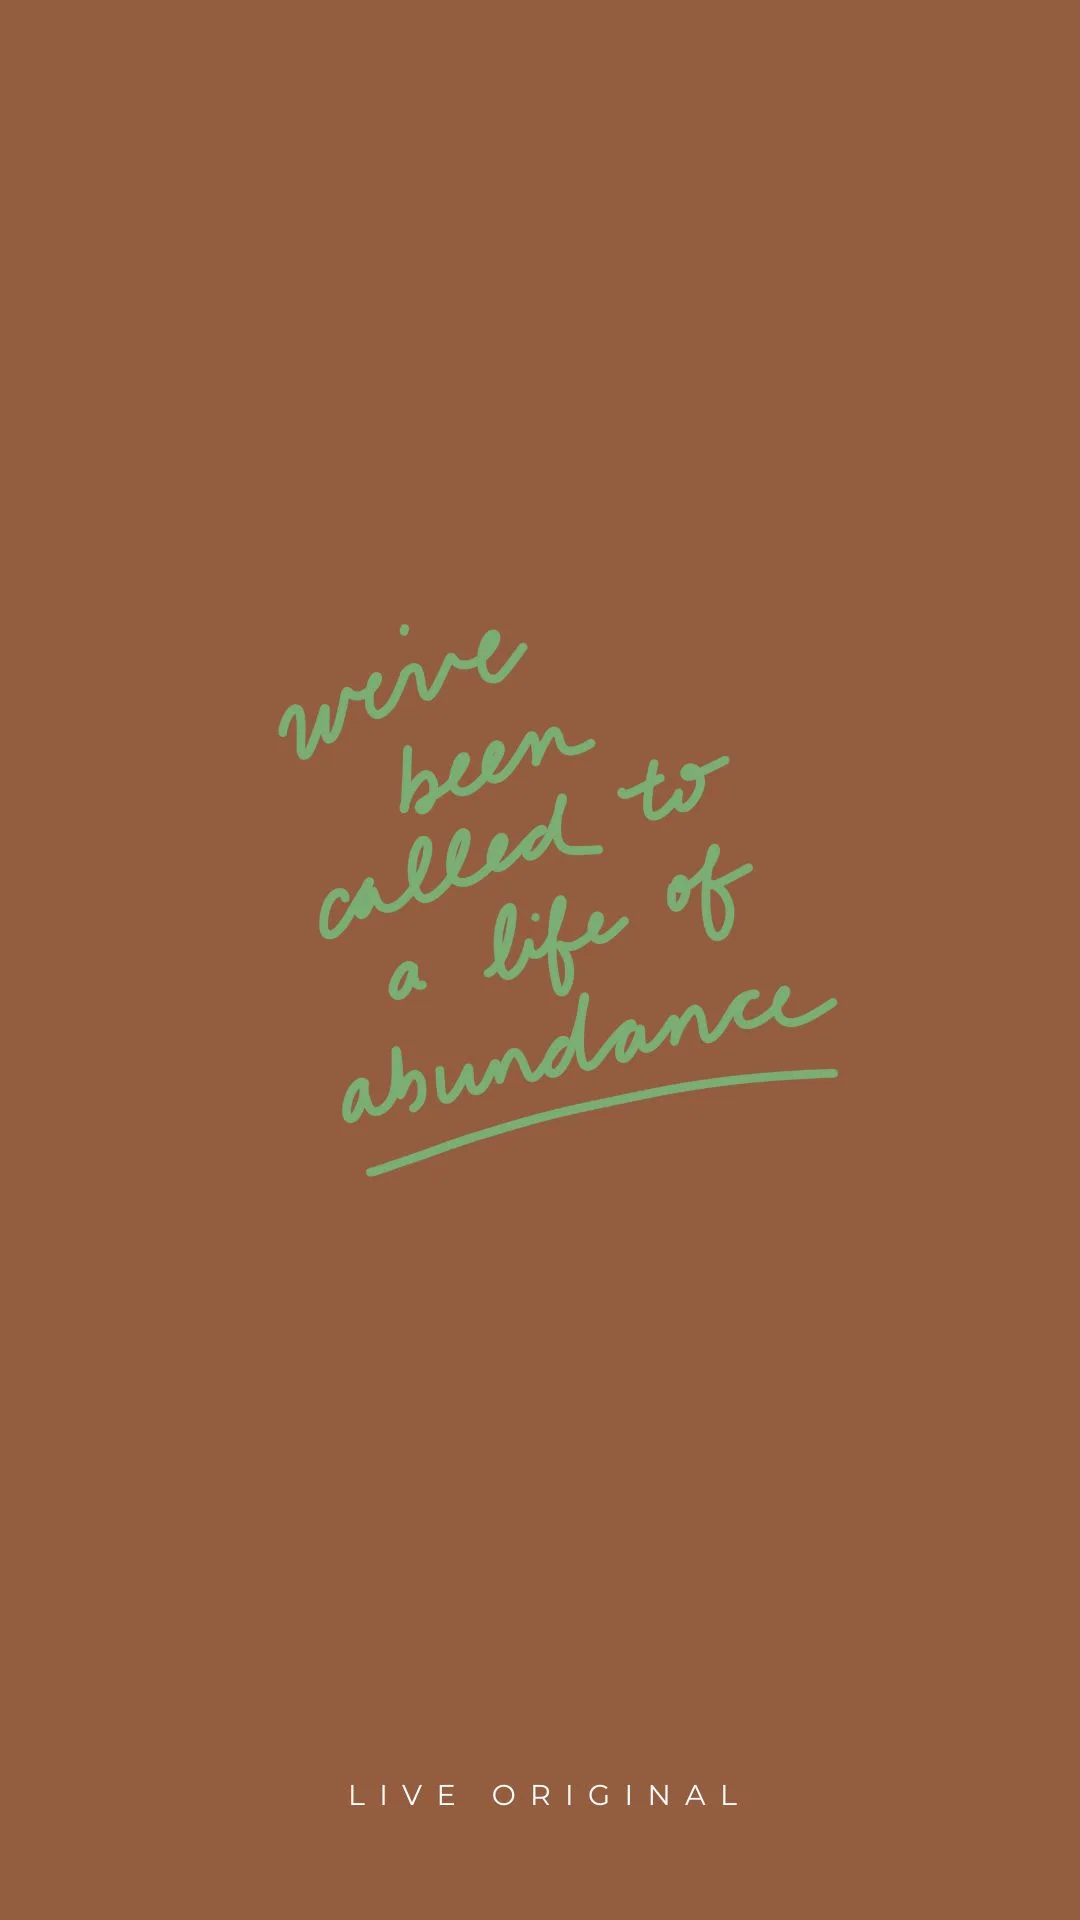 we've
been
called to
a life of
abundance
LIVE ORIGINAL